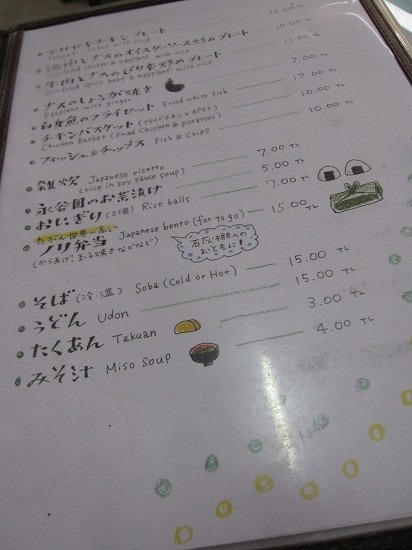 テリヤキチキンプレート
Teriyaki chicken with rice
肉とナスのオイスターソースいためプレート 12.00
Stirfried chicken & eggplant with rice
牛肉とナスのピリ辛炒めプレート 12.00
Stirfried spicy beef & eggplant with rice
ナスのしょうが焼き 7.00
Eggplant with ginger
白身魚のフライセット Fried white fish 17.00
チキンバスケット
Chicken Basket (Fried Chicken & potatoes) 10.00
フィッシュ&チップス Fish & Chips 10.00
雑炊 Japanese risotto 7.00 TL
(rice in soy sauce soup)
永谷園のお茶漬け 5.00 TL
おにぎり (2個) Rice balls 7.00 TL
たぶん世界一長い
ノリ弁当 Japanese bento (for to go) 15.00 TL
(からあげ、玉子焼きなどなど)
そば (冷・温) Soba (Cold or Hot) 15.00 TL
うどん Udon 15.00 TL
たくあん Takuan 3.00 TL
みそ汁 Miso Soup 4.00 TL